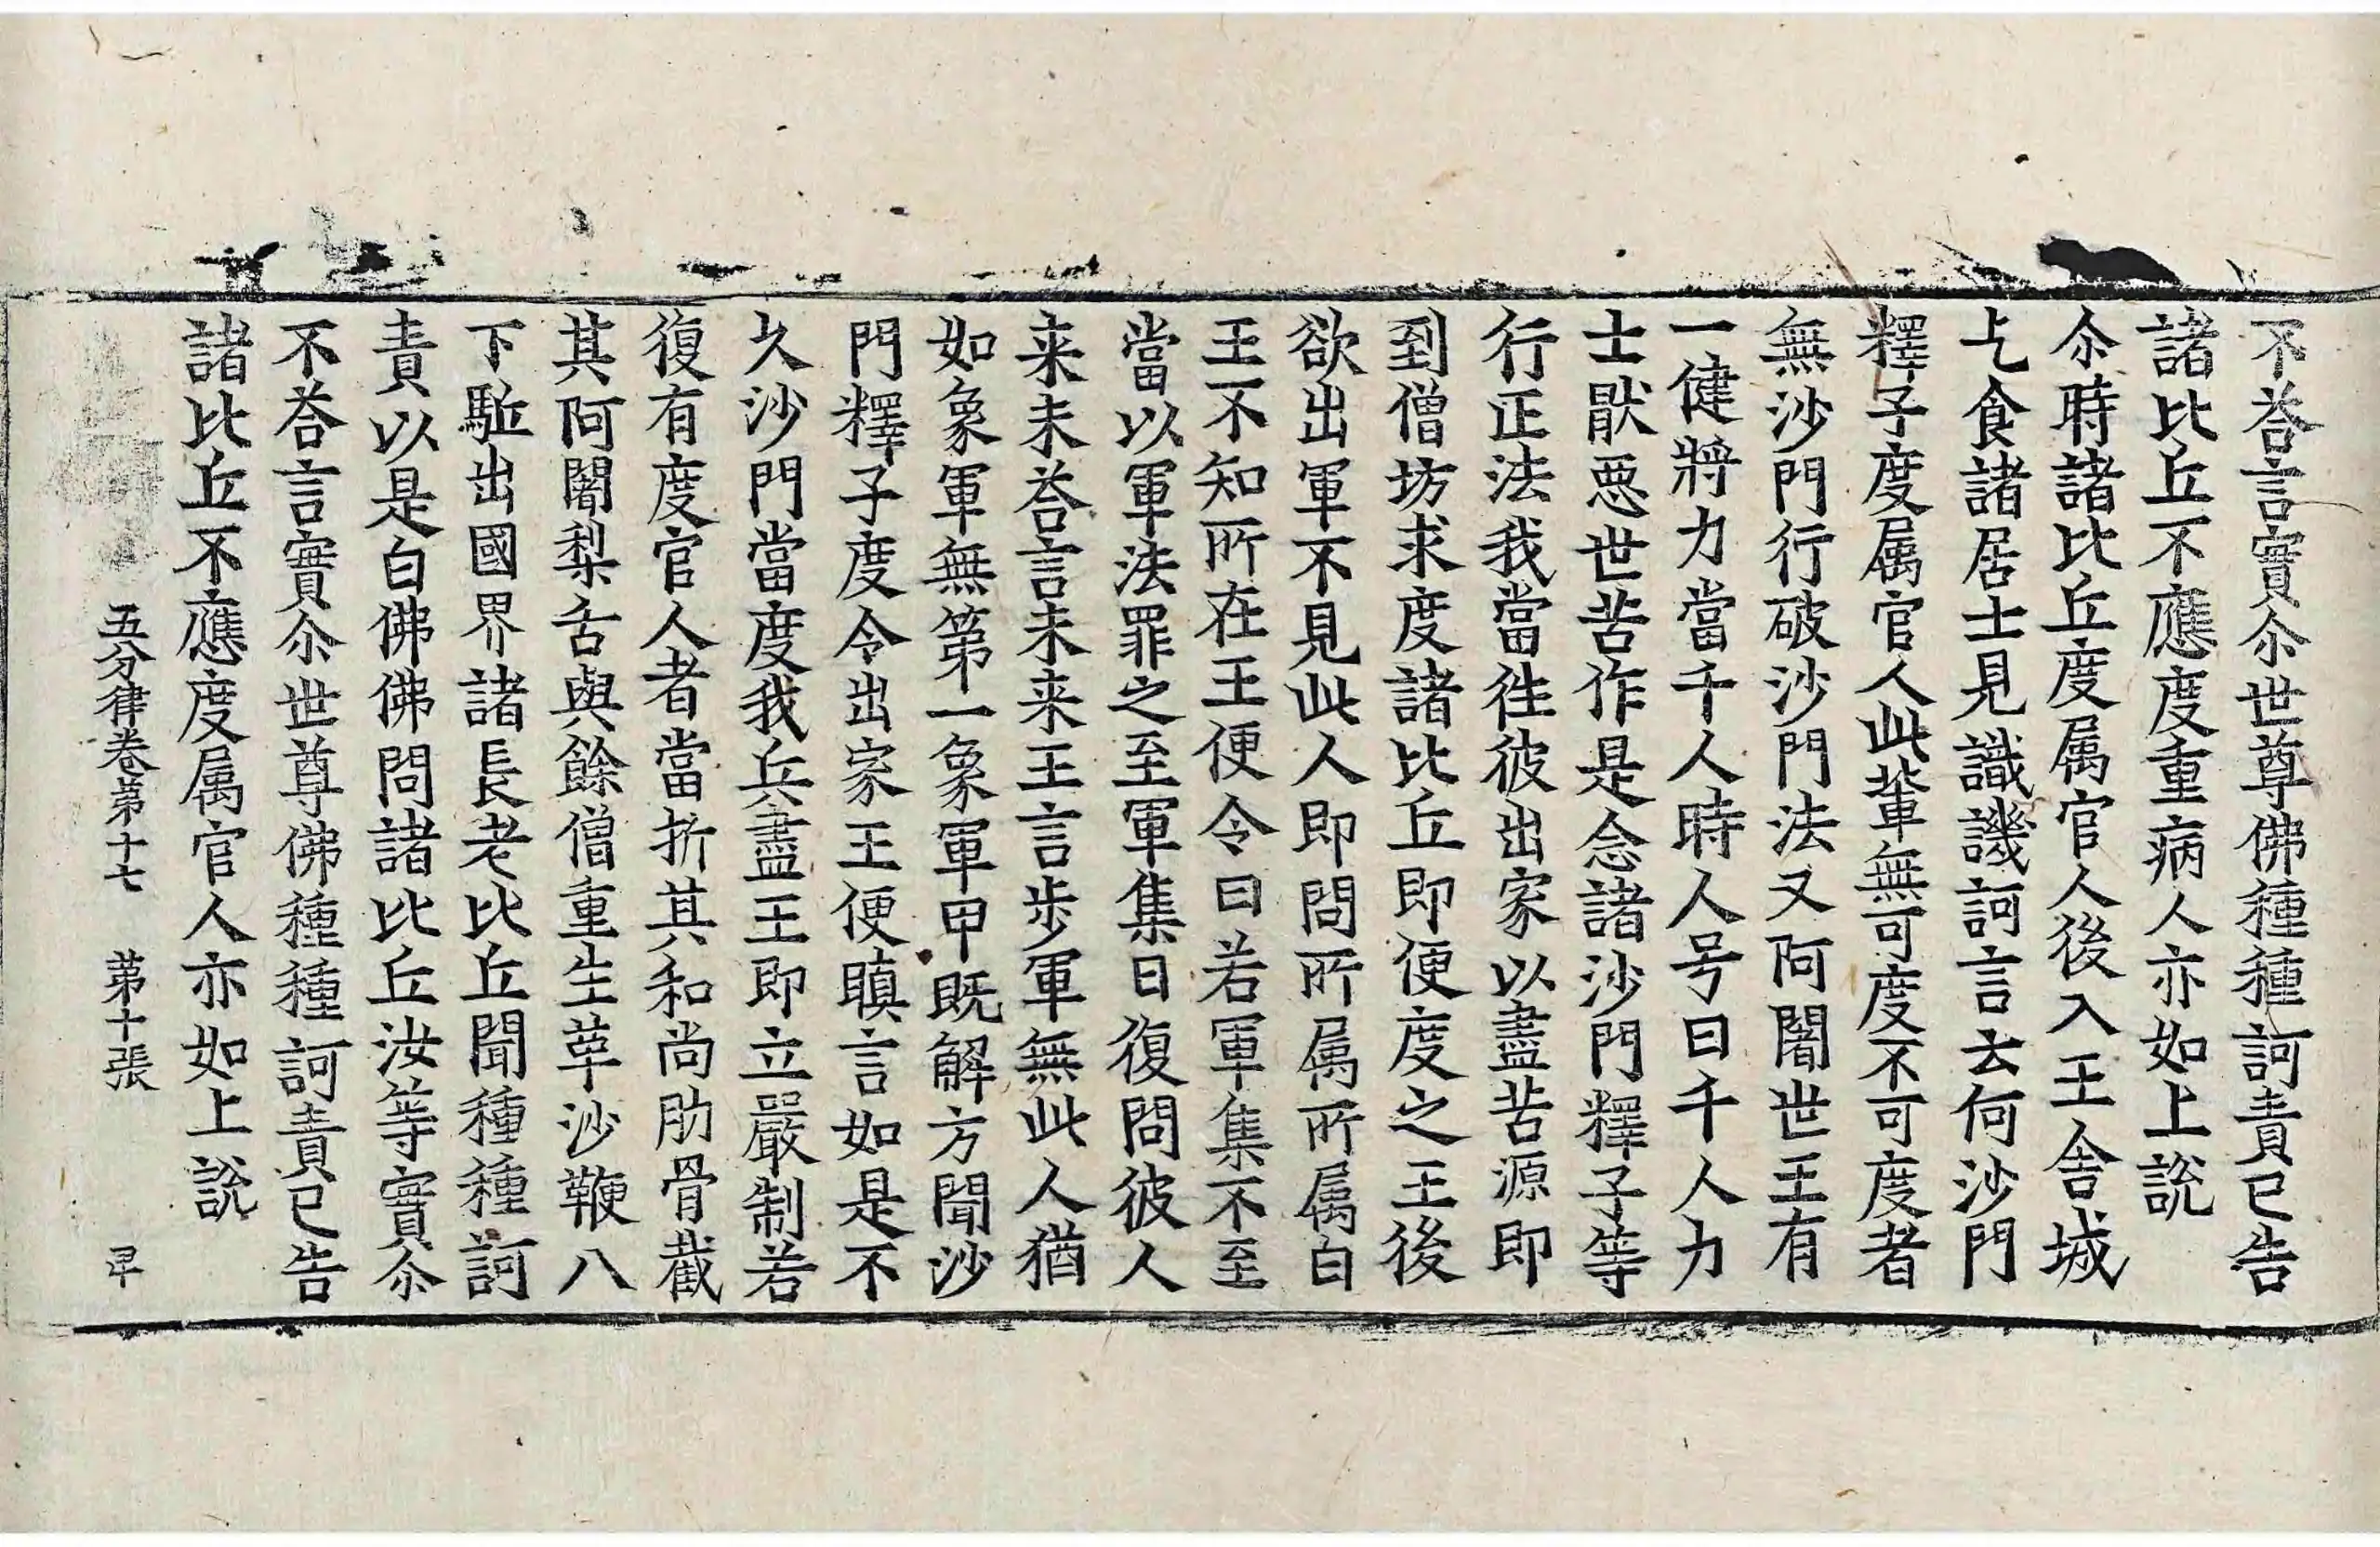 不荅言實尒世尊佛種種訶責已告
諸比丘不應度重病人亦如上說
尒時諸比丘度属官人後入王舍城
乞食諸居士見譏訶言云何沙門
釋子度属官人此輩無可度不可度者
無沙門行破沙門法又阿闍世王有
一健將力當千人時人号曰千人力
士猒惡世苦作是念諸沙門釋子等
行正法我當往彼出家以盡苦源即
到僧坊求度諸比丘即便度之王後
欲出軍不見此人即問所属所属白
王不知所在王便令曰若軍集不至
當以軍法罪之至軍集日復問彼人
来未荅言未来王言步軍無此人猶
如象軍無第一象軍甲既解方聞沙
門釋子度令出家王便瞋言如是不
久沙門當度我兵盡王即立嚴制若
復有度官人者當折其和尚肋骨截
其阿闍梨舌與餘僧重生革沙鞭八
下駈出國界諸長老比丘聞種種訶
責以是白佛佛問諸比丘汝等實尒
不荅言實尒世尊佛種種訶責已告
諸比丘不應度属官人亦如上說
五分律卷第十七 第十張